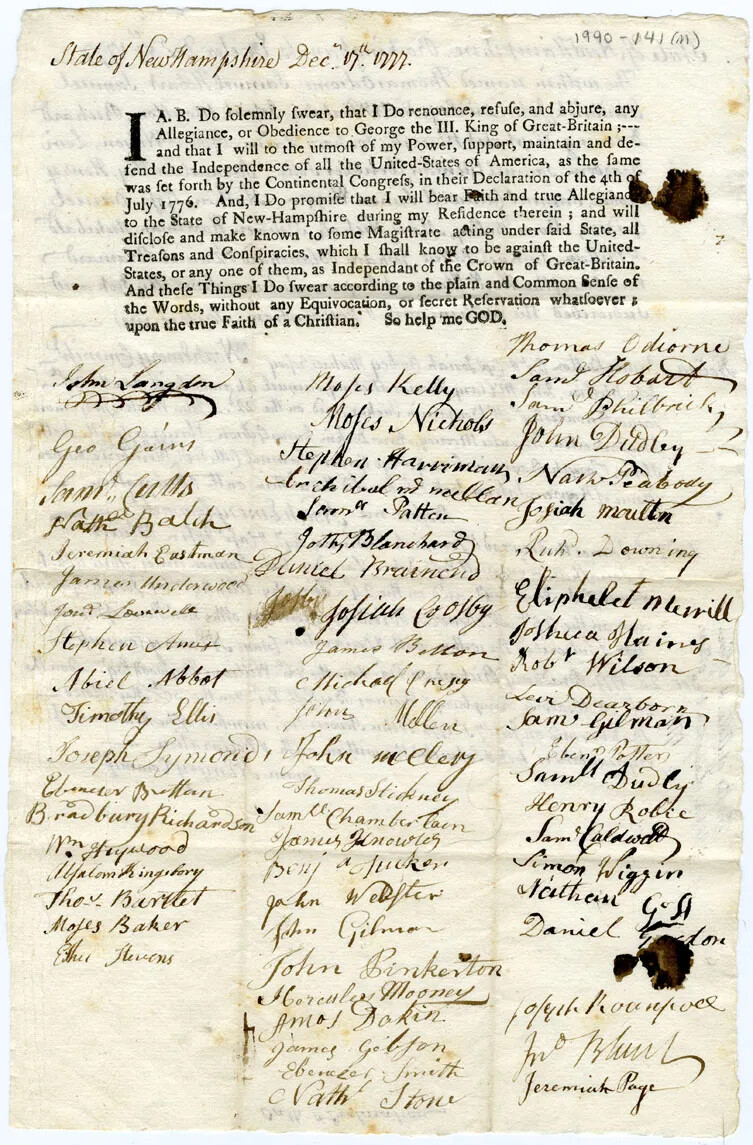 1990-141 (M)
State of New Hampshire Decr. 17th 1777.
I A. B. Do solemnly swear, that I Do renounce, refuse, and abjure, any
Allegiance, or Obedience to George the III. King of Great-Britain ;---
and that I will to the utmost of my Power, support, maintain and de-
fend the Independence of all the United-States of America, as the same
was set forth by the Continental Congress, in their Declaration of the 4th of
July 1776. And, I Do promise that I will bear Faith and true Allegiance
to the State of New-Hampshire during my Residence therein ; and will
disclose and make known to some Magistrate acting under said State, all
Treasons and Conspiracies, which I shall know to be against the United-
States, or any one of them, as Independant of the Crown of Great-Britain.
And these Things I Do swear according to the plain and Common Sense of
the Words, without any Equivocation, or secret Reservation whatsoever ;
upon the true Faith of a Christian. So help me GOD.
John Langdon
Geo Gains
Saml. Cutts
Nathl Balch
Jeremiah Eastman
James Underwood
Stephen Ames
Abiel Abbot
Timothy Ellis
Joseph Symonds
Ebenezer Brittan
Bradbury Richardson
Wm Heywood
Absalom Kingsbery
Thos. Bartlet
Moses Baker
Ether Stevens
Moses Kelly
Moses Nichols
Stephen Harriman
Archibal mcmellan
Saml Patten
Jothm Blanchard
Daniel Brainerd
Josiah Crosby
James Betton
Michael Cresey
John Mellen
John mcClery
Thomas Stickney
Samll Chamberlain
James Knowles
Benja Tucker
John Webster
John Gilman
John Pinkerton
Hercules Mooney
Amos Dakin
James Gibson
Ebenezer Smith
Nathl Stone
Thomas Odiorne
Saml Hobart
Saml Philbrick
John Dudley
Nathl Peabody
Josiah Moulton
Richd. Downing
Eliphelet Merrill
Joshua Haines
Robt Wilson
Levi Dearborn
Saml Gilman
Ebenr Potter
Samll Dudly
Henry Robie
Saml Caldwell
Simon Wiggin
Nathan
Daniel Gordon
Joseph
Jno Blunt
Jeremiah Page